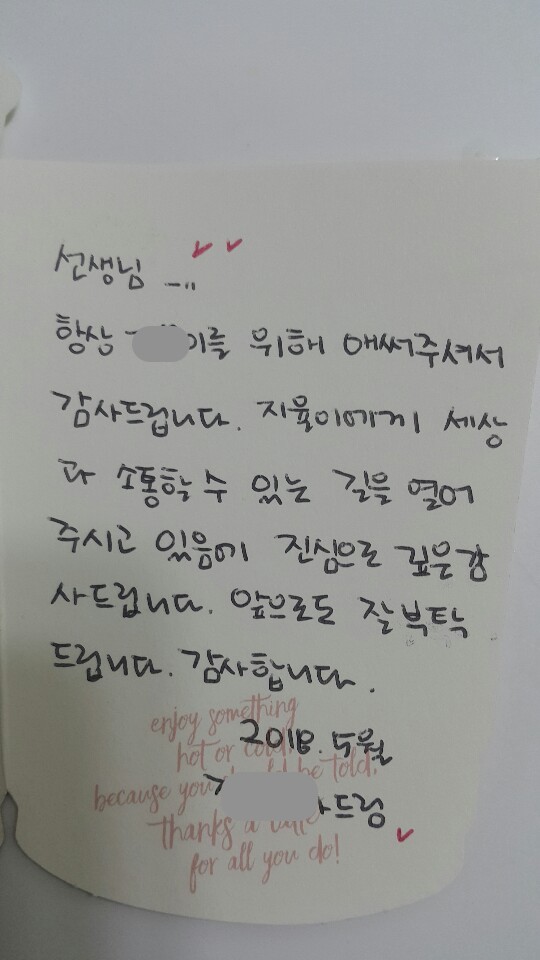 선생님 ....
항상 이를 위해 애써주셔서
감사드립니다. 지율이에게 세상
과 소통할 수 있는 길을 열어
주시고 있음에 진심으로 깊은감
사드립니다. 앞으로도 잘 부탁
드립니다. 감사합니다.
enjoy something
2018. 5월
hot or cold
because you be told,
드림
thanks a latte
for all you do!